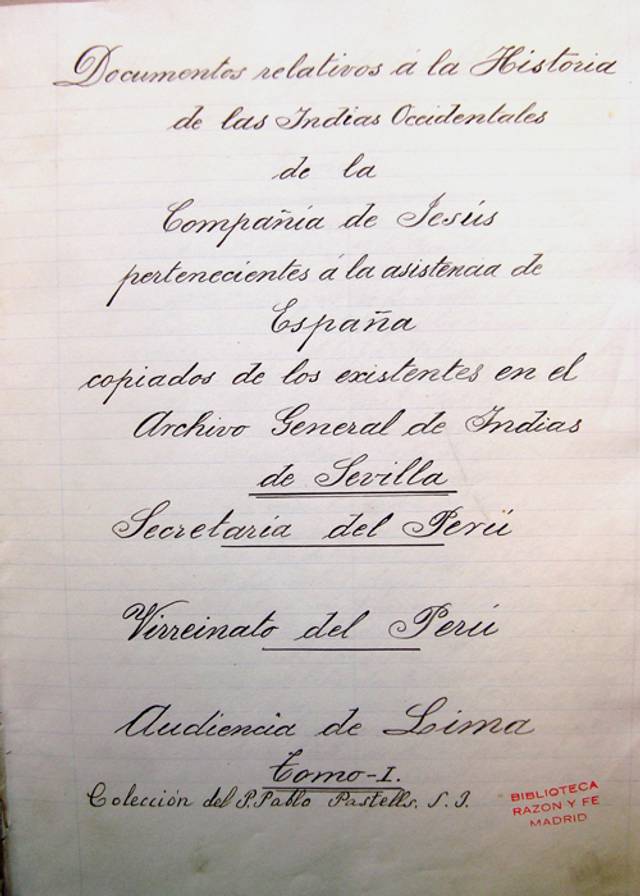 Documentos relativos á la Historia
de las Indias Occidentales
de la
Compañía de Jesús
pertenecientes á la asistencia de
España
copiados de los existentes en el
Archivo General de Indias
de Sevilla
Secretaría del Perú
Virreinato del Perú
Audiencia de Lima
Tomo-I.
Colección del P. Pablo Pastells. S. J.
BIBLIOTECA
RAZON Y FE
MADRID